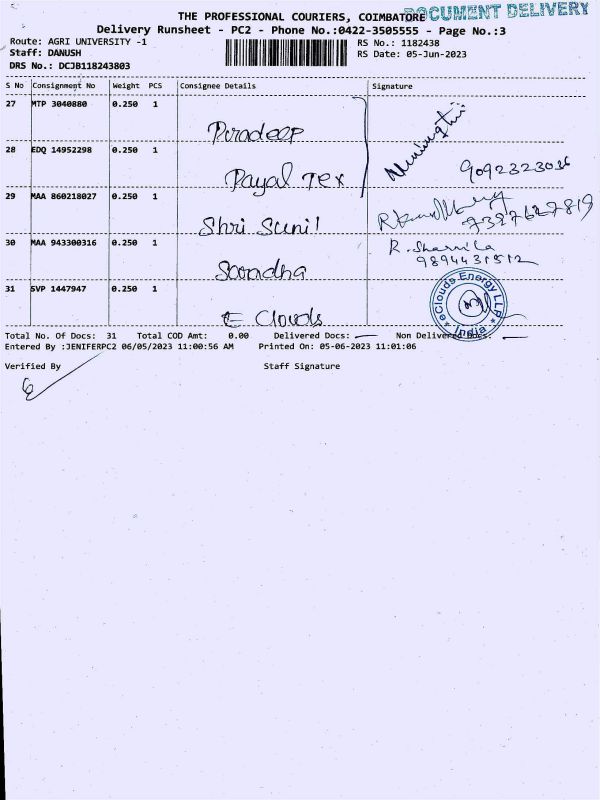 DOCUMENT DELIVERY
THE PROFESSIONAL COURIERS, COIMBATORE
Delivery Runsheet - PC2 - Phone No.:0422-3505555 - Page No.:3
Route: AGRI UNIVERSITY -1 RS No.: 1182438
Staff: DANUSH RS Date: 05-Jun-2023
DRS No.: DCJB118243803
S No Consignment No Weight PCS Consignee Details Signature
27 MTP 3040880 0.250 1
Piradeep
28 EDQ 14952298 0.250 1
Payal Tex 9092323036
29 MAA 860218027 0.250 1
Shri Sunil
30 MAA 943300316 0.250 1 R. Sharmila
Saradha 9894431512
31 SVP 1447947 0.250 1
E Clouds eClouds Energy LLP India
Total No. Of Docs: 31 Total COD Amt: 0.00 Delivered Docs: Non Delivered Docs:
Entered By :JENIFERPC2 06/05/2023 11:00:56 AM Printed On: 05-06-2023 11:01:06
Verified By Staff Signature